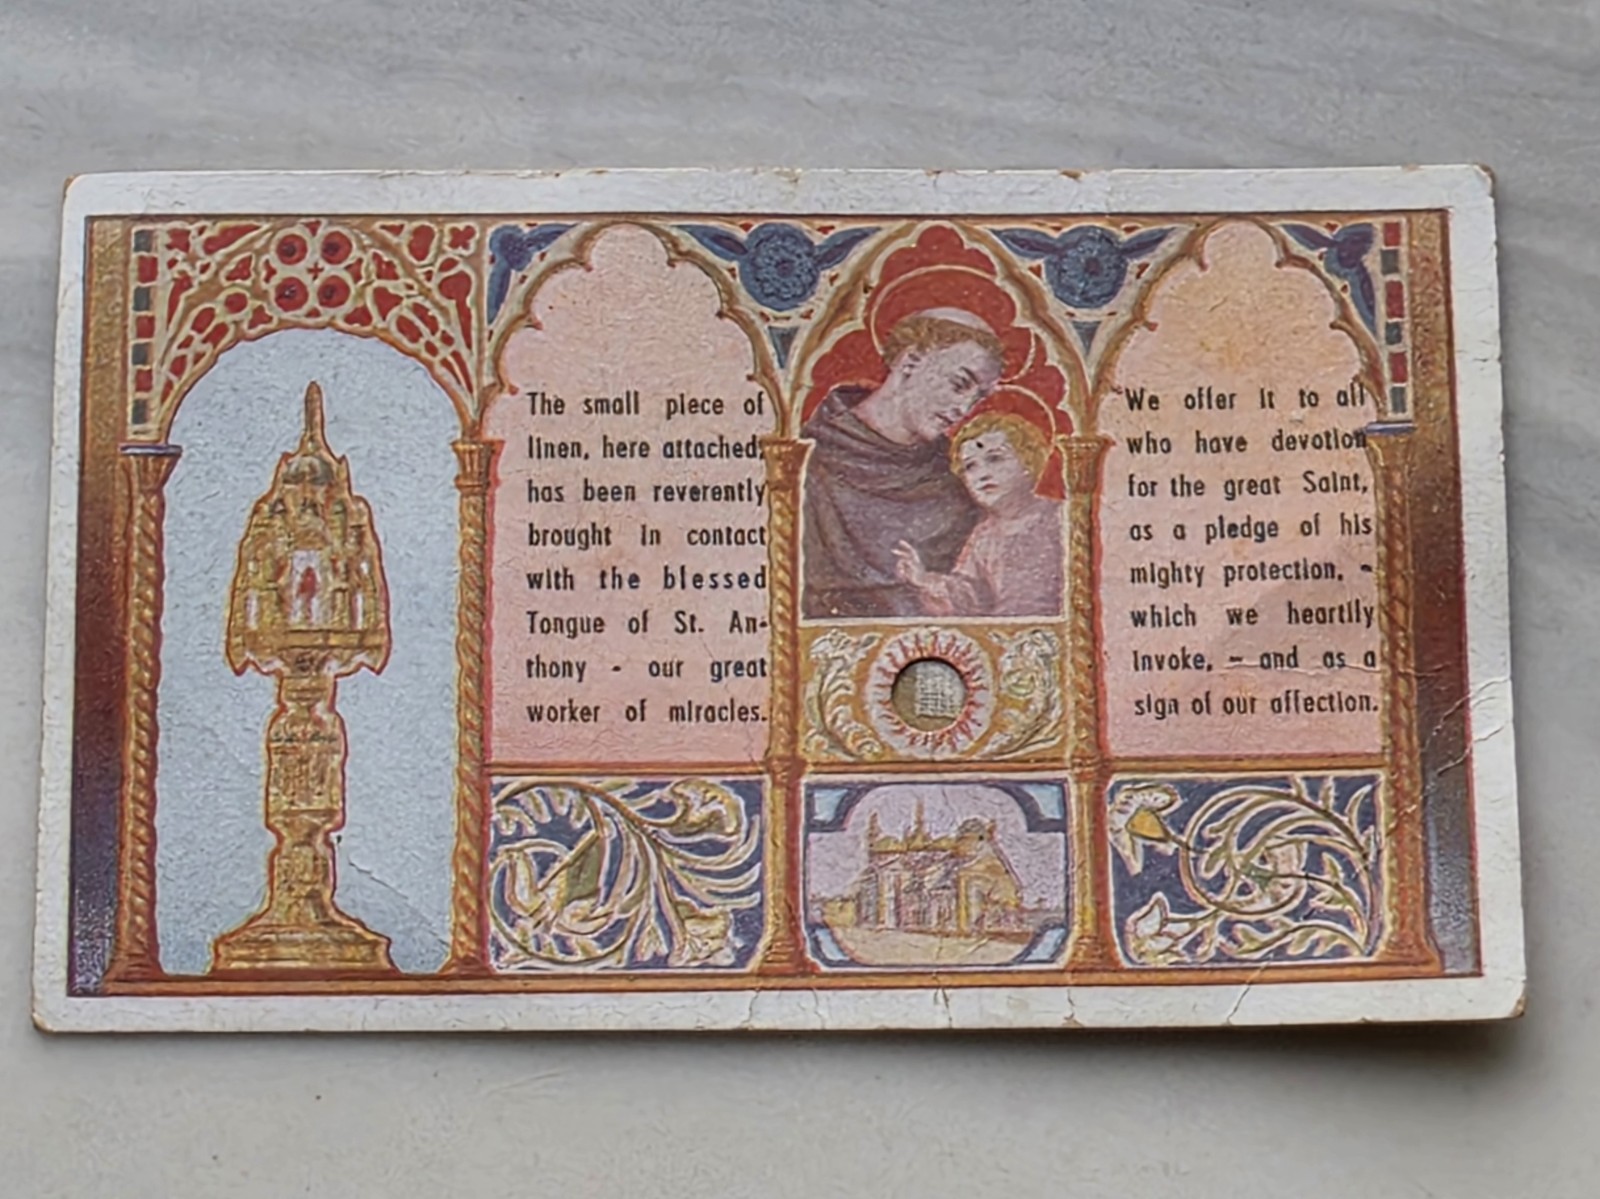 The small piece of
linen, here attached,
has been reverently
brought in contact
with the blessed
Tongue of St. An-
thony - our great
worker of miracles.
We offer it to all
who have devotion
for the great Saint,
as a pledge of his
mighty protection, -
which we heartily
invoke, - and as a
sign of our affection.